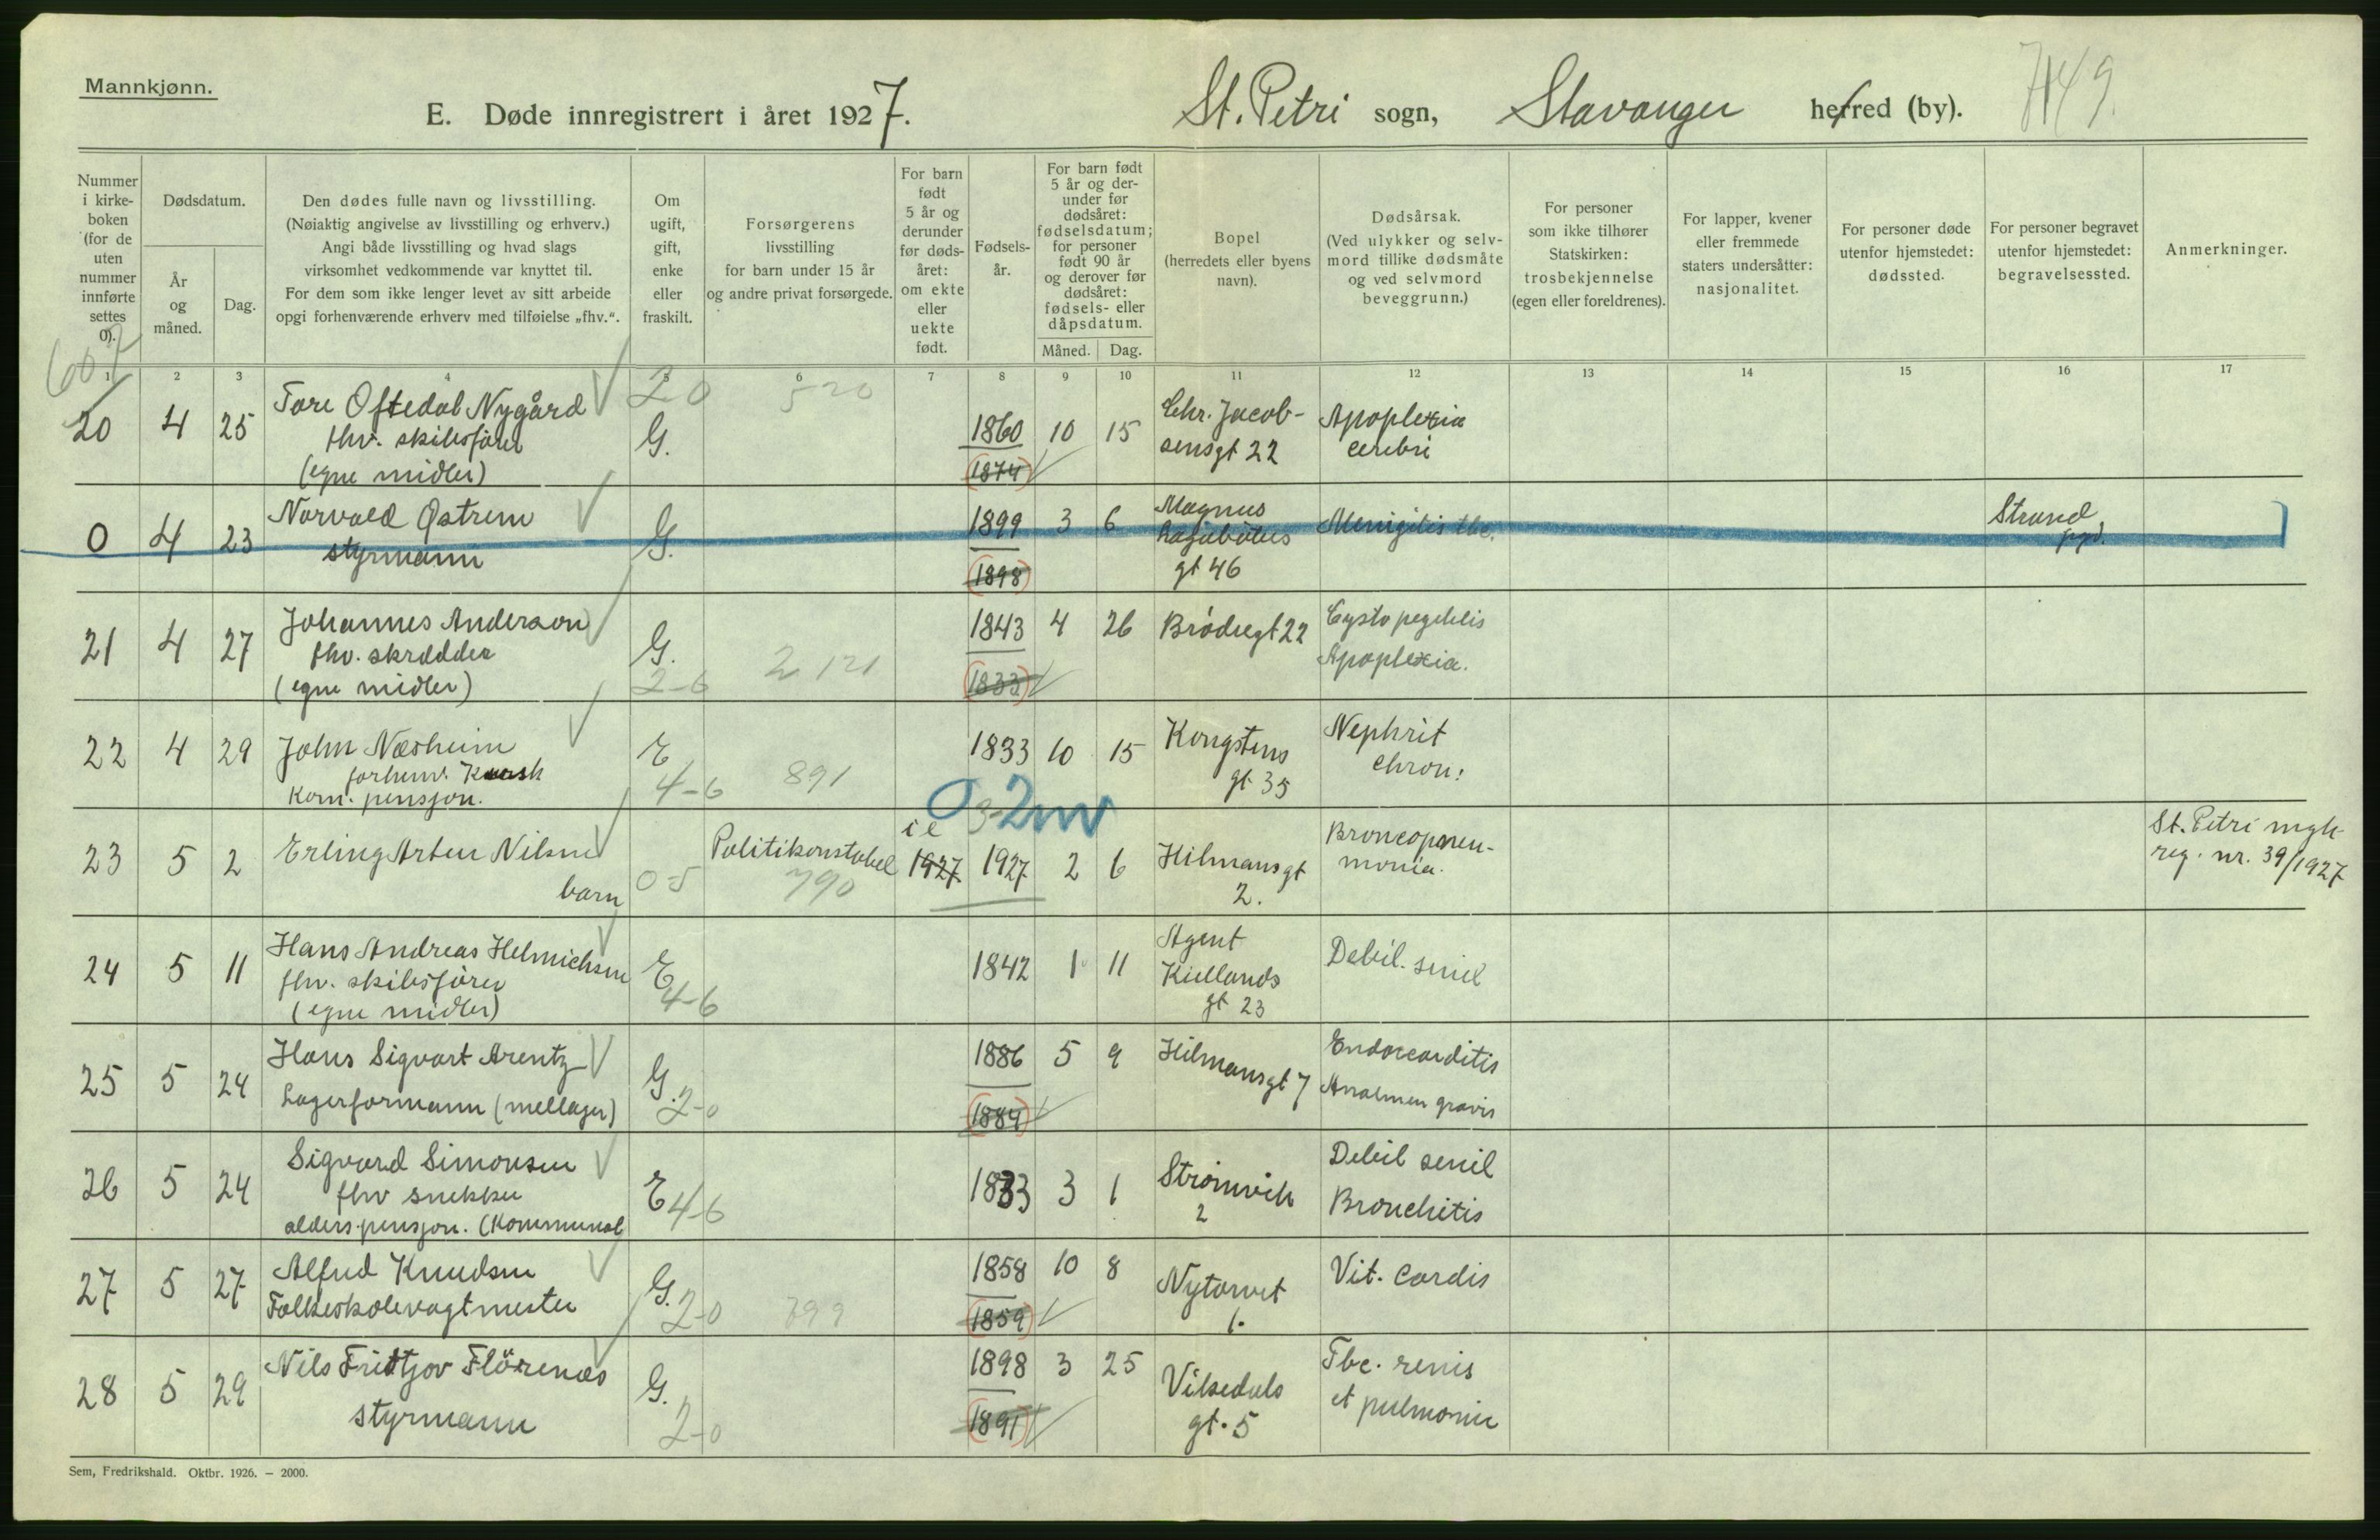 Mannkjønn.
E. Døde innregistrert i året 1927.
St. Petri sogn, Stavanger herred (by).
Nummer i kirke-boken (for de uten nummer innførte settes 0).
Dødsdatum.
År og måned.
Dag.
Den dødes fulle navn og livsstilling.
(Nøiaktig angivelse av livsstilling og erhverv.)
Angi både livsstilling og hvad slags
virksomhet vedkommende var knyttet til.
For dem som ikke lenger levet av sitt arbeide
opgi forhenværende erhverv med tilføielse „fhv.“.
Om ugift, gift, enke eller fraskilt.
Forsørgerens
livsstilling
for barn under 15 år
og andre privat forsørgede.
For barn født 5 år og derunder før døds-året: om ekte eller uekte født.
Fødsels-år.
For barn født 5 år og der-under før dødsåret: fødselsdatum; for personer født 90 år og derover før dødsåret: fødsels- eller dåpsdatum.
Måned. Dag.
Bopel
(herredets eller byens navn).
Dødsårsak.
(Ved ulykker og selv-mord tillike dødsmåte og ved selvmord beveggrunn.)
For personer som ikke tilhører Statskirken: trosbekjennelse (egen eller foreldrenes).
For lapper, kvener eller fremmede staters undersåtter: nasjonalitet.
For personer døde utenfor hjemstedet: dødssted.
For personer begravet utenfor hjemstedet: begravelsessted.
Anmerkninger.
1 2 3 4 5 6 7 8 9 10 11 12 13 14 15 16 17
20 4 25 Tore Oftedal Nygård G. 20 520 1860 10 15 Chr. Jacob- Apoplexia
fhv. skibsfører sensgt 22 cerebri
(egne midler) (1874)
0 4 23 Norvald Østrem G. 1899 3 6 Magnus Menigitis tbc. Strand
styrmann Lagabøtes pgd.
(1898) gt 46
21 4 27 Johannes Anderson G. 1843 4 26 Brødregt 22
fhv. skrædder 2-6 2 121 Apoplexia.
(egne midler) (1833)
22 4 29 John Næsheim E 1833 10 15 Kongstens Nephrit
forhenv. 4-6 891 gt 35 chron.
Kom. pensjon.
23 5 2 Erling Arten Nilsen Politikonstabel 1927 1927 2 6 Hilmansgt Broncopneu- St. Petri mgh
barn 0-5 790 2. monia. reg. nr. 39/1927
24 5 11 Hans Andreas Helmichsen E 1842 1 11 Agent Debil. senil
fhv. skibsfører 4-6 Kiellands
(egne midler) gt 23
25 5 24 Hans Sigvart Arentz G. 1886 5 9 Hilmansgt 7 Endocarditis
Lagerformann (mellager) 2-0 (1884) gravis
26 5 24 Sigvard Simonsen E 1833 3 1 Strømvik Debil senil
fhv snekker 4-6 2 Bronchitis
alders.pensjon. (Kommunal
27 5 27 Alfred Knudsen G. 1858 10 8 Nytorvet Vit. Cordis
Folkeskolevagtmester 2-0 799 (1859) 1.
28 5 29 Nils Fridtjov Flörenæs G. 1898 3 25 Vikedals Tbc. renis
styrmann 2-0 (1891) gt. 5 et pulmonia
Sem, Fredrikshald. Oktbr. 1926. – 2000.